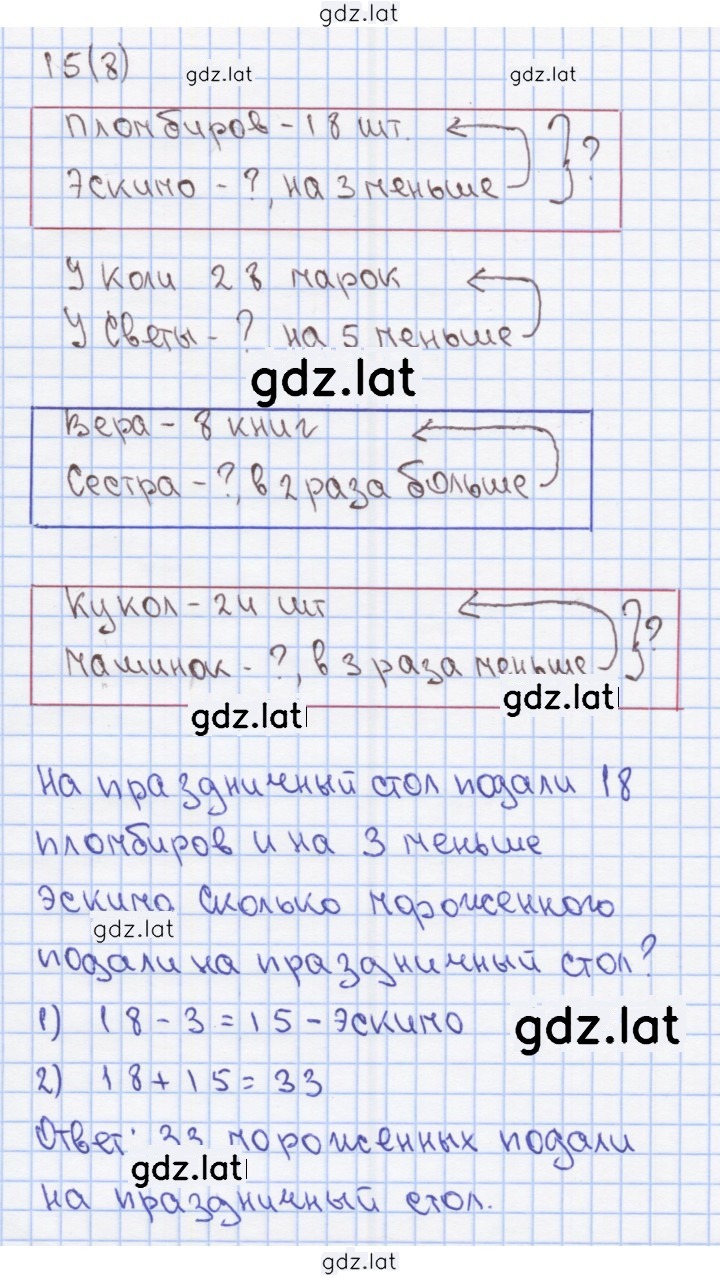 gdz.lat
15(8)
gdz.lat gdz.lat
Пломбиров - 18 шт. ?
Эскимо - ?, на 3 меньше
У Коли 28 марок
У Светы - ? на 5 меньше
gdz.lat
Вера - 8 книг
Сестра - ?, в 2 раза больше
Кукол - 24 шт ?
Машинок - ?, в 3 раза меньше
gdz.lat gdz.lat
На праздничный стол подали 18
пломбиров и на 3 меньше
эскимо. Сколько мороженного
gdz.lat
подали на праздничный стол?
1) 18 - 3 = 15 - эскимо
gdz.lat
2) 18 + 15 = 33
Ответ: 33 мороженных подали
gdz.lat
на праздничный стол.
gdz.lat